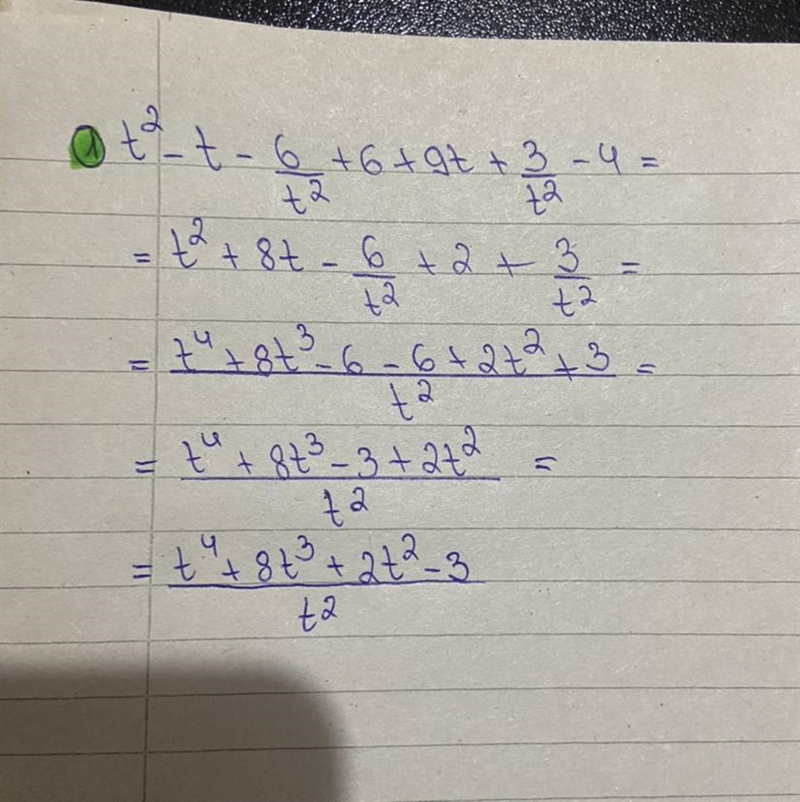 1) t² - t - 6/t² + 6 + 9t + 3/t² - 4 =
= t² + 8t - 6/t² + 2 + 3/t² =
= (t⁴ + 8t³ - 6 - 6 + 2t² + 3)/t² =
= (t⁴ + 8t³ - 3 + 2t²)/t² =
= (t⁴ + 8t³ + 2t² - 3)/t²